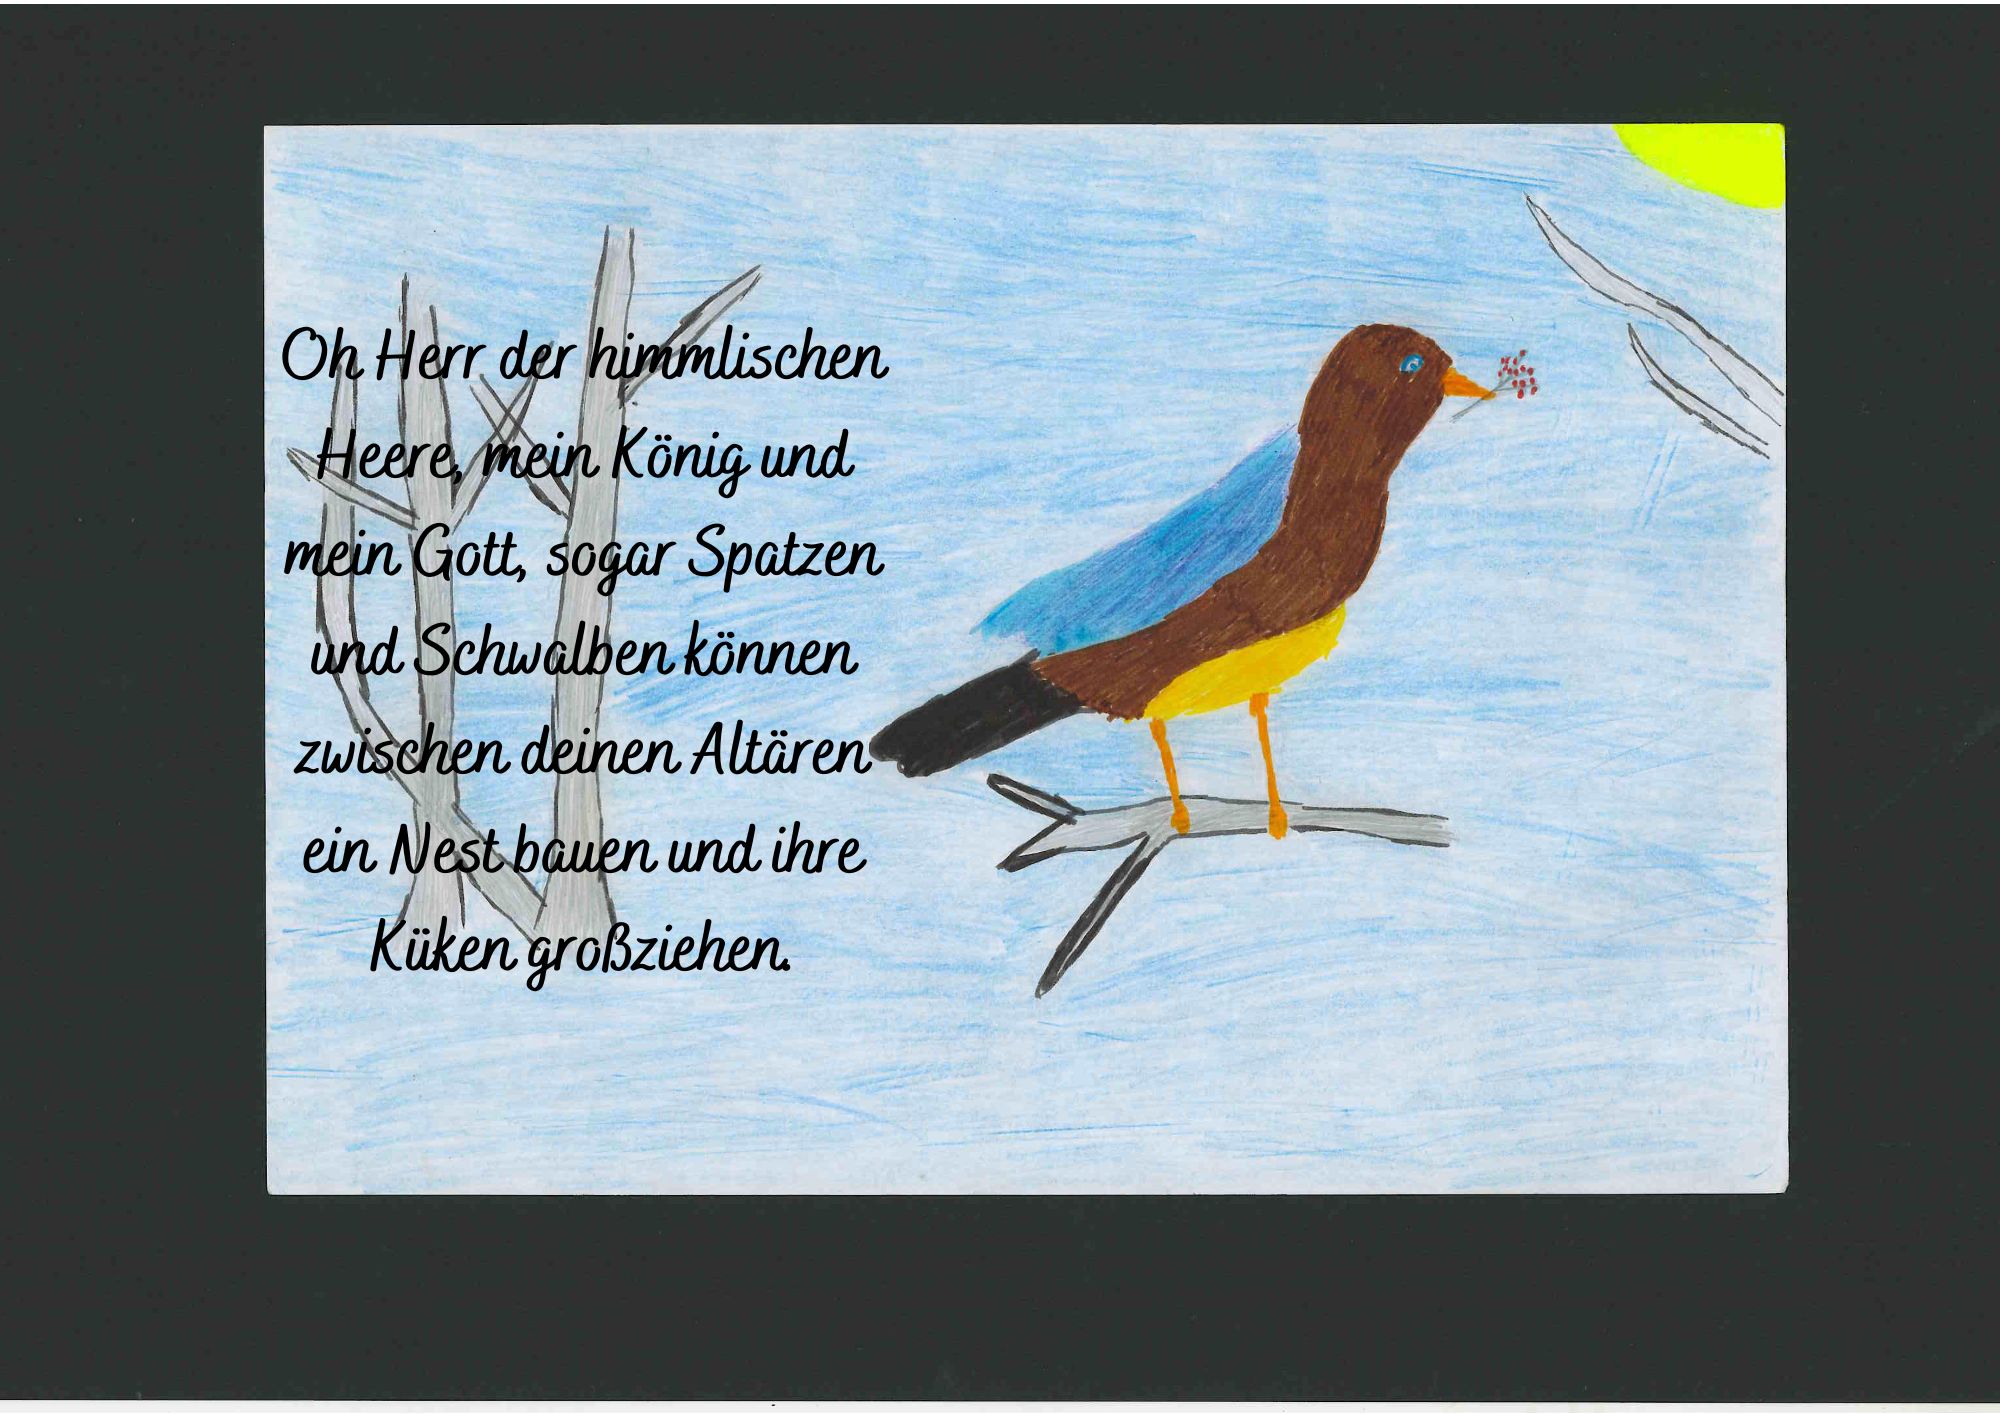 Oh Herr der himmlischen
Heere, mein König und
mein Gott, sogar Spatzen
und Schwalben können
zwischen deinen Altären
ein Nest bauen und ihre
Küken großziehen.